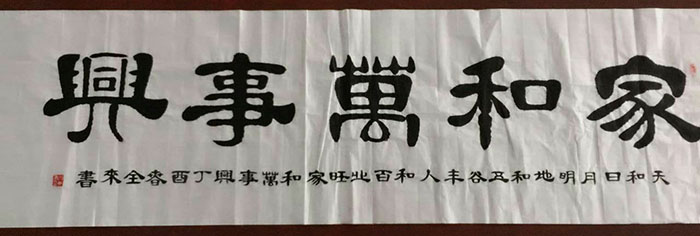 家和萬事興
天和日月明地和五谷丰人和百业旺家和萬事興丁酉春全來書